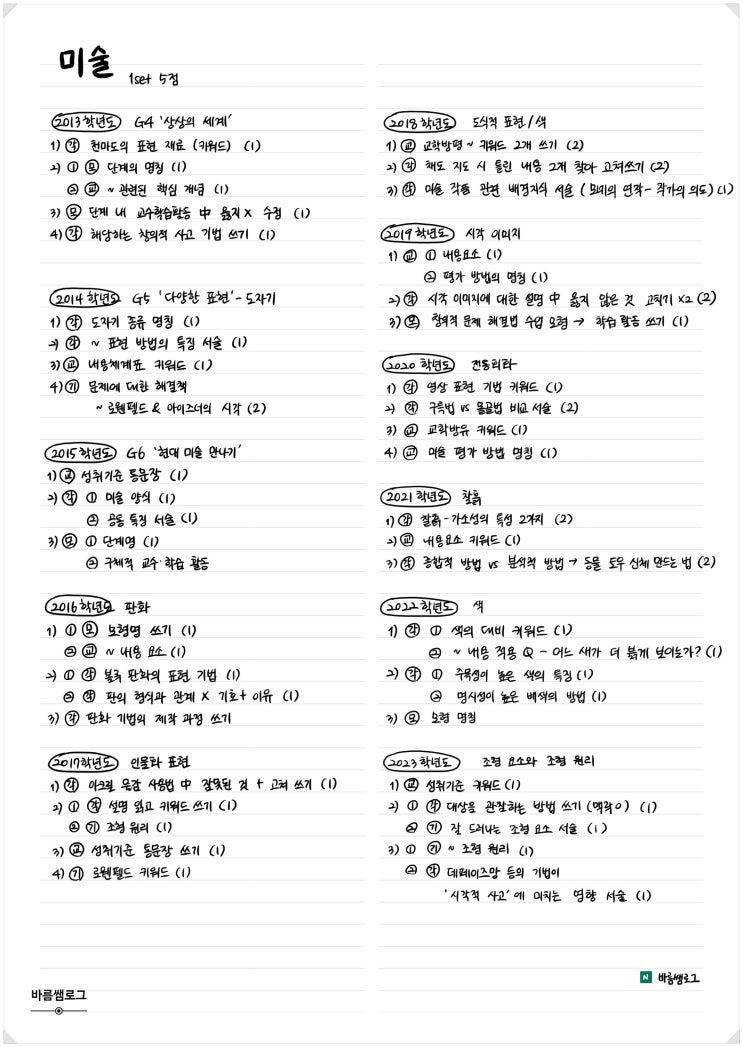 미술 1set 5점
2013학년도 G4 '상상의 세계'
1) 각 천마도의 표현 재료 (키워드) (1)
2) ① 모 단계의 명칭 (1)
② 교 ~ 관련된 핵심 개념 (1)
3) 모 단계 내 교수학습활동 中 옳지X 수정 (1)
4) 각 해당하는 창의적 사고 기법 쓰기 (1)
2014 학년도 G5 '다양한 표현' - 도자기
1) 각 도자기 종류 명칭 (1)
2) 각 ~ 표현 방법의 특징 서술 (1)
3) 교 내용체계표 키워드 (1)
4) 기 문제에 대한 해결책
~ 로웬펠드 & 아이즈너의 시각 (2)
2015 학년도 G6 '현대 미술 만나기'
1) 교 성취기준 통문장 (1)
2) 각 ① 미술 양식 (1)
② 공통 특징 서술 (1)
3) 모 ① 단계명 (1)
② 구체적 교수·학습 활동
2016 학년도 판화
1) ① 모 모형명 쓰기 (1)
② 교 ~ 내용 요소 (1)
2) ① 각 볼록 판화의 표현 기법 (1)
② 각 판의 형식과 관계 X 기호 + 이유 (1)
3) 각 판화 기법의 제작 과정 쓰기
2017학년도 인물화 표현
1) 각 아크릴 물감 사용법 中 잘못된 것 + 고쳐 쓰기 (1)
2) ① 각 설명 읽고 키워드 쓰기 (1)
② 기 조형 원리 (1)
3) 교 성취기준 통문장 쓰기 (1)
4) 기 로웬펠드 키워드 (1)
2018 학년도 도식적 표현/색
1) 교 교학방평 ~ 키워드 2개 쓰기 (2)
2) 각 채도 지도 시 틀린 내용 2개 찾아 고쳐쓰기 (2)
3) 각 미술 작품 관련 배경지식 서술 (모네의 연작 - 작가의 의도) (1)
2019 학년도 시각 이미지
1) 교 ① 내용요소 (1)
② 평가 방법의 명칭 (1)
2) 각 시각 이미지에 대한 설명 中 옳지 않은 것 고치기 x2 (2)
3) 모 창의적 문제 해결법 수업 모형 → 학습 활동 쓰기 (1)
2020 학년도 전통회화
1) 각 영상 표현 기법 키워드 (1)
2) 각 구륵법 vs 몰골법 비교 서술 (2)
3) 교 교학방유 키워드 (1)
4) 교 미술 평가 방법 명칭 (1)
2021 학년도 찰흙
1) 각 찰흙 - 가소성의 특성 2가지 (2)
2) 교 내용요소 키워드 (1)
3) 각 종합적 방법 vs 분석적 방법 → 동물 도우 신체 만드는 법 (2)
2022학년도 색
1) 각 ① 색의 대비 키워드 (1)
② ~ 내용 적용 Q - 어느 새가 더 붉게 보이는가? (1)
2) 각 ① 주목성이 높은 색의 특징 (1)
② 명시성이 높은 배색의 방법 (1)
3) 모 모형 명칭
2023학년도 조형 요소와 조형 원리
1) 교 성취기준 키워드 (1)
2) ① 각 대상을 관찰하는 방법 쓰기 (맥락O) (1)
② 기 잘 드러나는 조형 요소 서술 (1)
3) ① 기 ~ 조형 원리 (1)
② 각 데페이즈망 등의 기법이
'시각적 사고'에 미치는 영향 서술 (1)
N 바름쌤로그
바름쌤로그